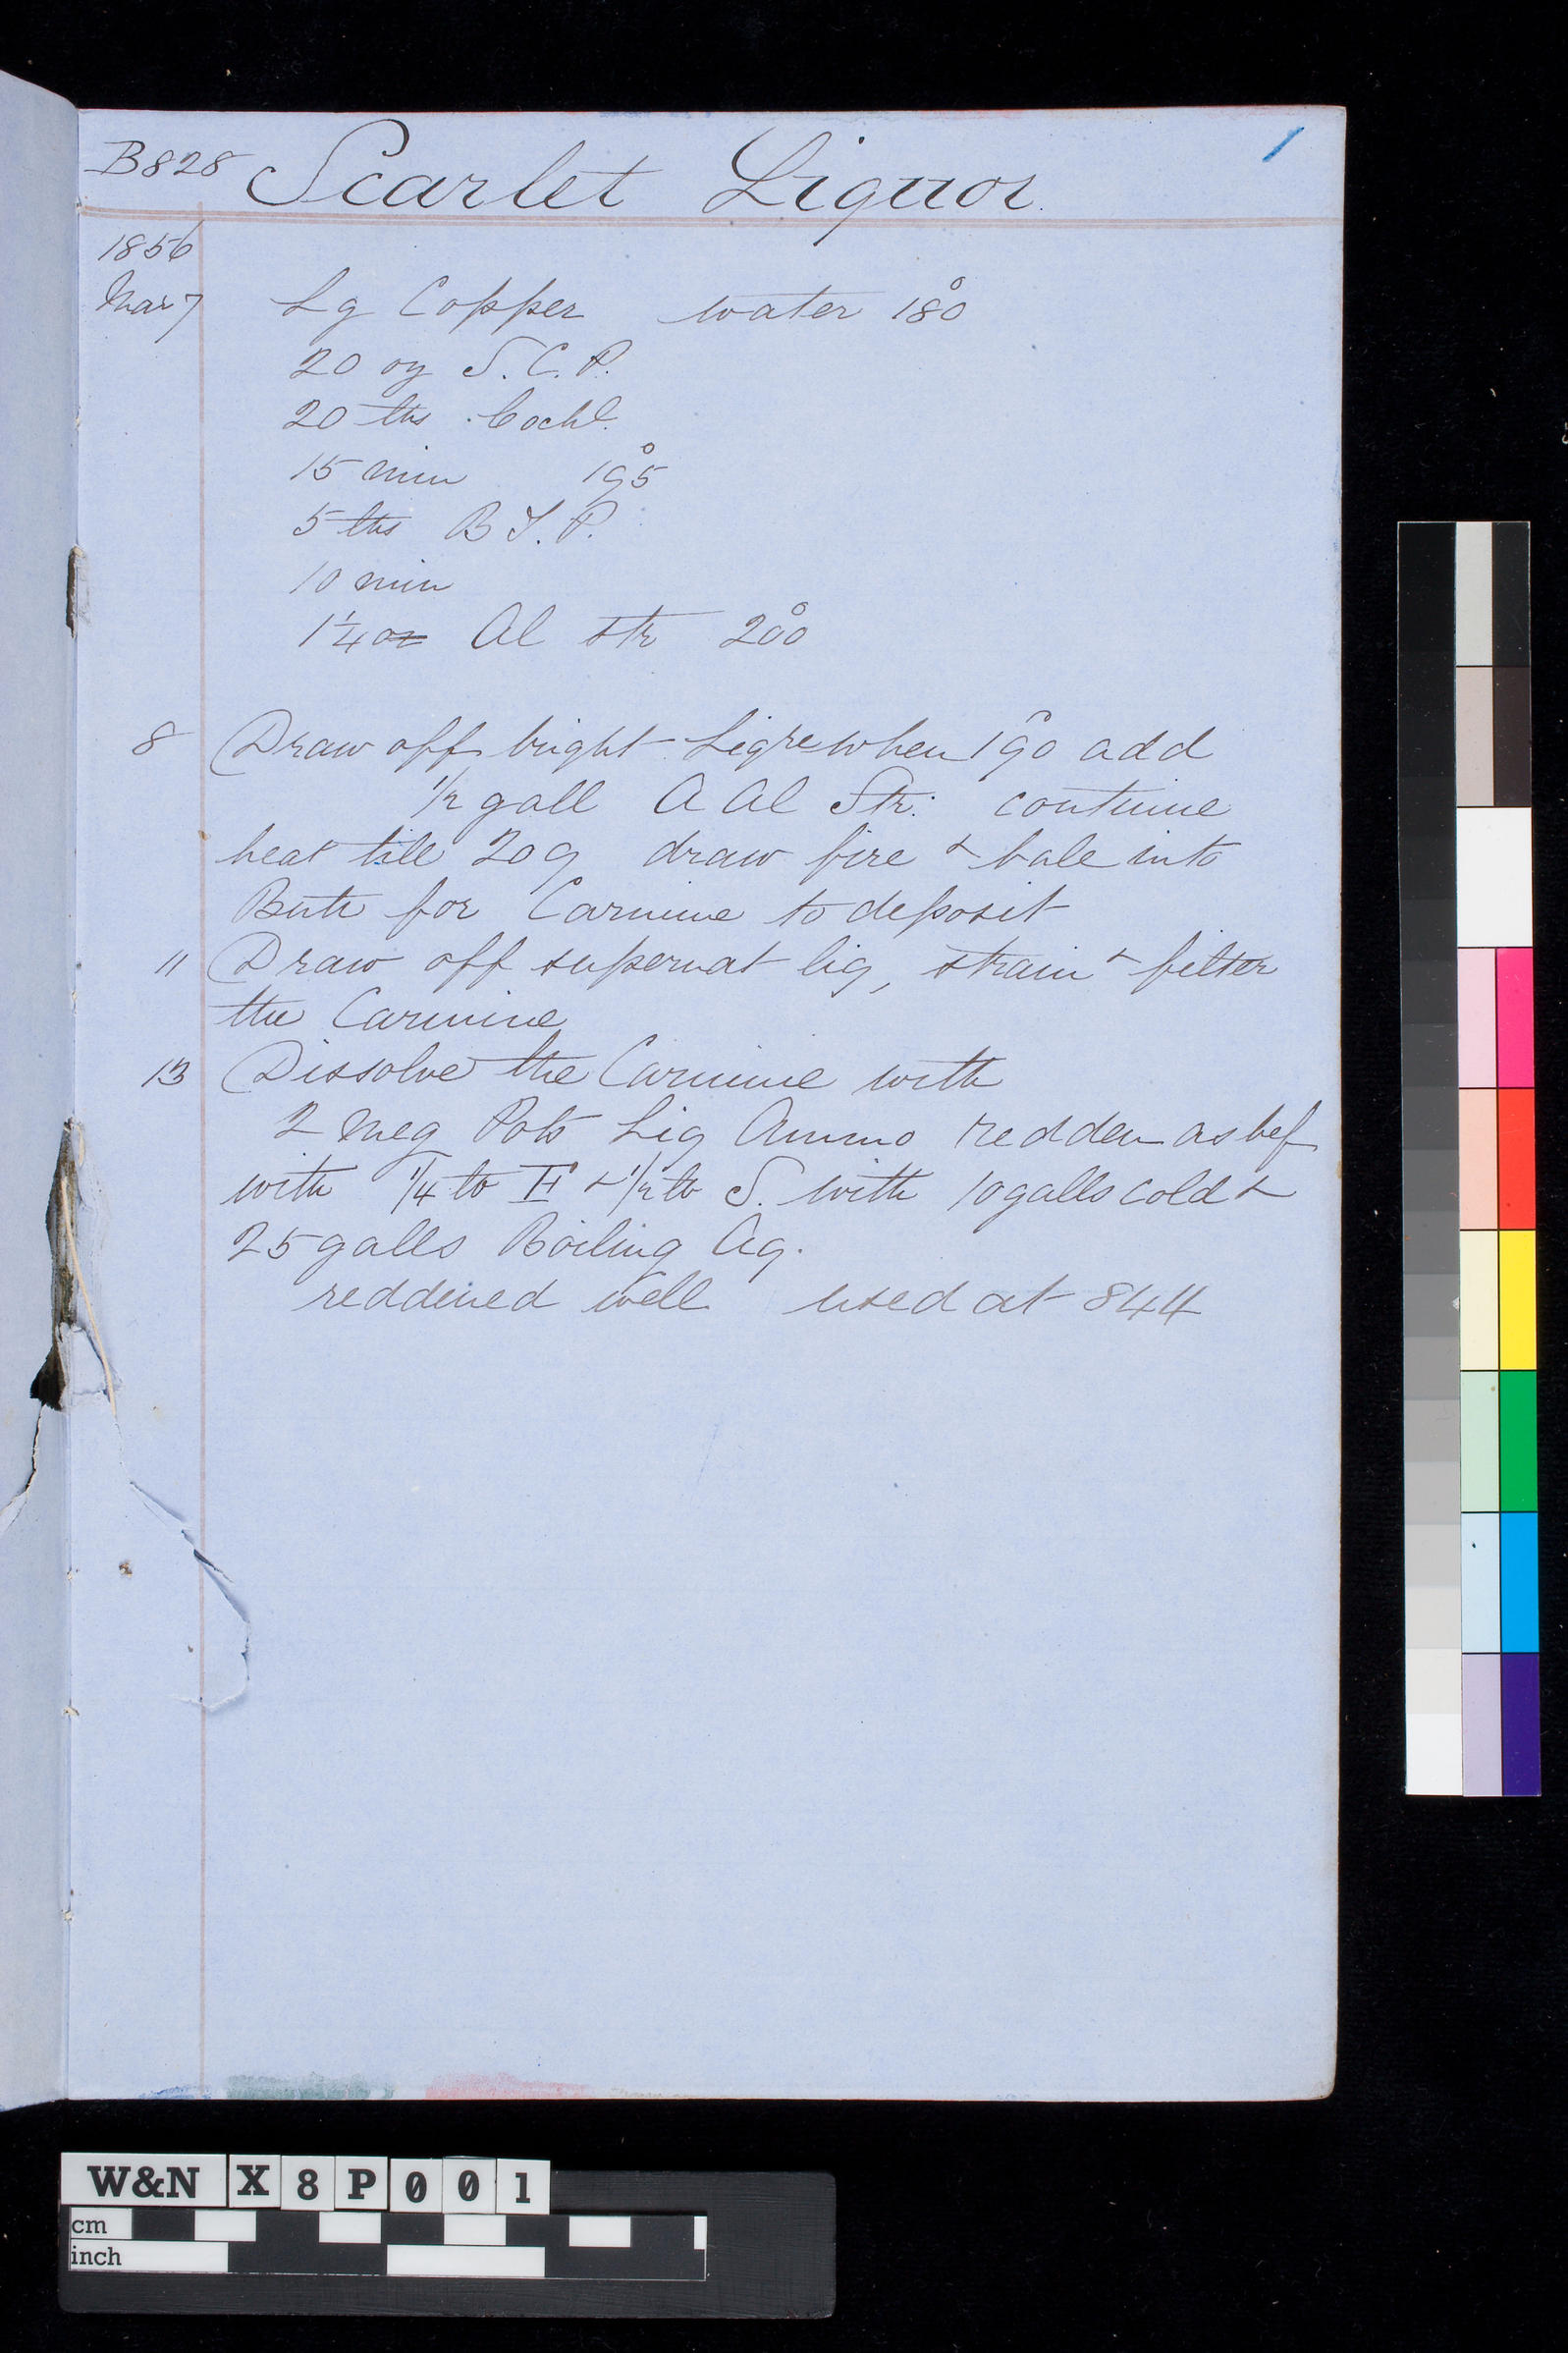 1
B828 Scarlet Liquor.
1856
Mar 7 Lg Copper water 180°
20 oz S. C. P.
20 lbs Cochl.
15 min 195°
5 lbs B T. P.
10 min
1¼ oz Al str 200°
8 Draw off bright Liq re when 190° add
½ gall A Al Str: continue
heat till 209 draw fire & bale into
Butt for Carmine to deposit
11 Draw off supernat liq, strain & filter
the Carmine
13 Dissolve the Carmine with
2 Meg Pots Liq Ammo redden as bef
with ¼ to F & ½ to S. with 10 galls cold &
25 galls Boiling Aq.
reddened well used at 844
W&N X8P001
cm
inch